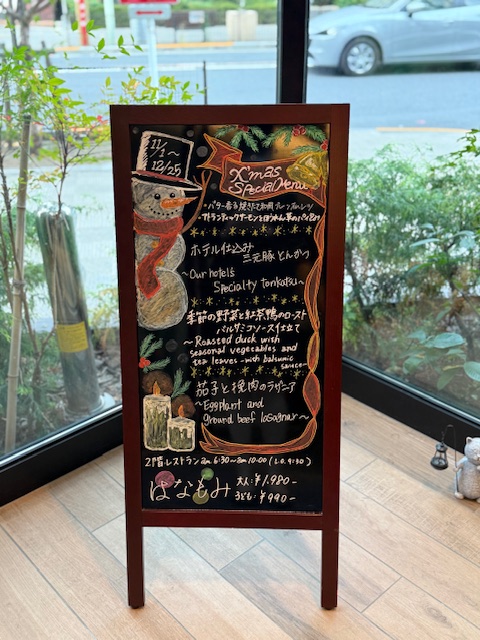 11/1~
12/25
X'mas
Special Menu
ホテル仕込み
三元豚とんかつ
~Our hotel's
Specialty tonkatsu~
季節の野菜と紅茶鴨のロースト
バルサミコソース仕立て
~Roasted duck with
seasonal vegetables and
tea leaves -with balsamic
sauce~
茄子と挽肉のラザニア
~Eggplant and
ground beef lasagna~
2階レストラン am 6:30~am 10:00 (L.O. 9:30)
はなもみ
大人:¥1,980-
子ども:¥990-